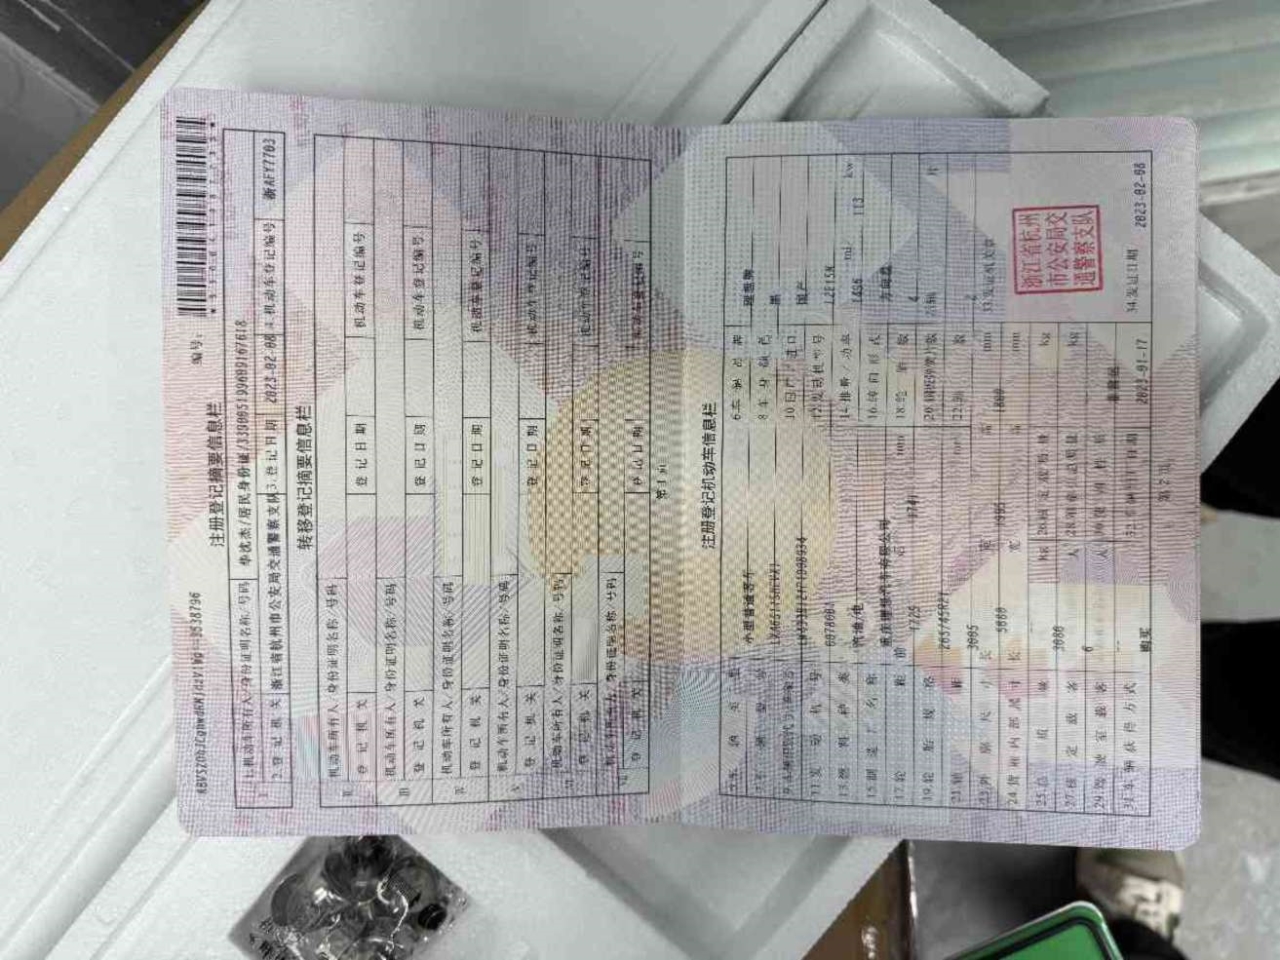 注册登记摘要信息栏
编号:
1.机动车所有人/身份证明名称/号码
居民身份证
2.登记机关 浙江省杭州市公安局交通警察支队 3.登记日期 2023-02-08 4.机动车登记编号 浙AFY7703
转移登记摘要信息栏
机动车所有人/身份证明名称/号码
登记机关 登记日期 机动车登记编号
机动车所有人/身份证明名称/号码
登记机关 登记日期 机动车登记编号
机动车所有人/身份证明名称/号码
登记机关 登记日期 机动车登记编号
机动车所有人/身份证明名称/号码
登记机关 登记日期 机动车登记编号
机动车所有人/身份证明名称/号码
登记机关 登记日期 机动车登记编号
机动车所有人/身份证明名称/号码
登记机关 登记日期 机动车登记编号
第1页
注册登记机动车信息栏
5.车辆类型 小型普通客车 6.车辆品牌 理想牌
7.车辆型号 8.车身颜色 黑
9.车辆识别代号/车架号 10.国产/进口 国产
11.发动机号 12.发动机型号 L2E15M
13.燃料种类 汽油/电 14.排量/功率 ml 113 kw
15.制造厂名称 16.转向形式 方向盘
17.轮距 前 1725 后 1741 mm 18.轮胎数 4
19.轮胎规格 265/45R21 20.钢板弹簧片数 片
21.轴距 3005 mm 22.轴数 2
23.外廓尺寸 长 5080 宽 1995 高 1800 mm 33.发证机关章
浙江省杭州
市公安局交
通警察支队
24.货厢内部尺寸 长 宽 高 mm
25.总质量 3080 kg 26.核定载质量 kg
27.核定载客 6 人 28.准牵引总质量 kg
29.驾驶室载客 -- 人 30.使用性质 非营运
31.车辆获得方式 购买 32.车辆出厂日期 2023-01-17 34.发证日期 2023-02-08
第2页